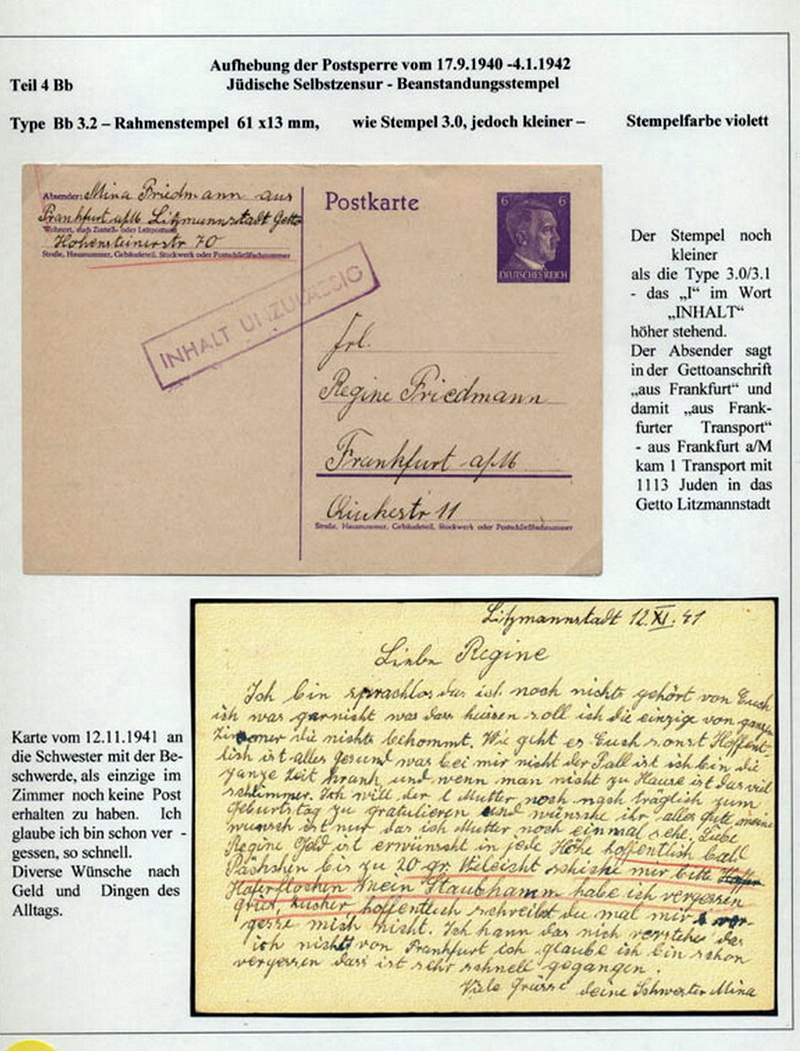 Aufhebung der Postsperre vom 17.9.1940 -4.1.1942
Teil 4 Bb
Jüdische Selbstzensur - Beanstandungsstempel
Type Bb 3.2 – Rahmenstempel 61 x13 mm, wie Stempel 3.0, jedoch kleiner – Stempelfarbe violett
Absender: Mina Friedmann aus
Frankfurt a/M Litzmannstadt Getto
Wohnort, auch Zustell- oder Leitpostamt
Hohensteinerstr 70
Straße, Hausnummer, Gebäudeteil, Stockwerk oder Postschließfachnummer
Postkarte
6 6
DEUTSCHES REICH
INHALT UNZULÄSSIG
Frl.
Regine Friedmann
Frankfurt a/M
11
Straße, Hausnummer, Gebäudeteil, Stockwerk oder Postschließfachnummer
Der Stempel noch
kleiner
als die Type 3.0/3.1
- das „I“ im Wort
„INHALT“
höher stehend.
Der Absender sagt
in der Gettoanschrift
„aus Frankfurt“ und
damit „aus Frank-
furter Transport“
- aus Frankfurt a/M
kam 1 Transport mit
1113 Juden in das
Getto Litzmannstadt
Karte vom 12.11.1941 an
die Schwester mit der Be-
schwerde, als einzige im
Zimmer noch keine Post
erhalten zu haben. Ich
glaube ich bin schon ver -
gessen, so schnell.
Diverse Wünsche nach
Geld und Dingen des
Alltags.
Litzmannstadt 12.XI.41
Liebe Regine
Ich bin sprachlos das ich noch nichts gehört von Euch
ich was garnicht was dass heissen soll ich die einzige von ganzen
Zimmer die nichts bekommt. Wie geht es Euch sonst Hoffent
lich ist alles gesund was bei mir nicht der Fall ist ich bin die
ganze Zeit krank, und wenn man nicht zu Hause ist das viel
schlimmer. Ich will der l Mutter noch nach träglich zum
Geburtstag zu gratulieren und wünsche ihr alles gute meine
wunsch ist nur das ich Mutter noch einmal sehe. Liebe
Regine Geld ist erwünscht in jede Höhe hoffentlich bald
Päckchen bis zu 20 gr. Vileicht schicke mir bitte
Haferflocken mein Staubkamm habe ich vergessen
Gries, Zucker, hoffentlich schreibst du mal mir ver-
gesse mich nicht. Ich kann das nich verstehe das
ich nichts von Frankfurt ich glaube ich bin schon
vergessen dass ist sehr schnell gegangen.
Viele Grüsse deine Schwester Mina